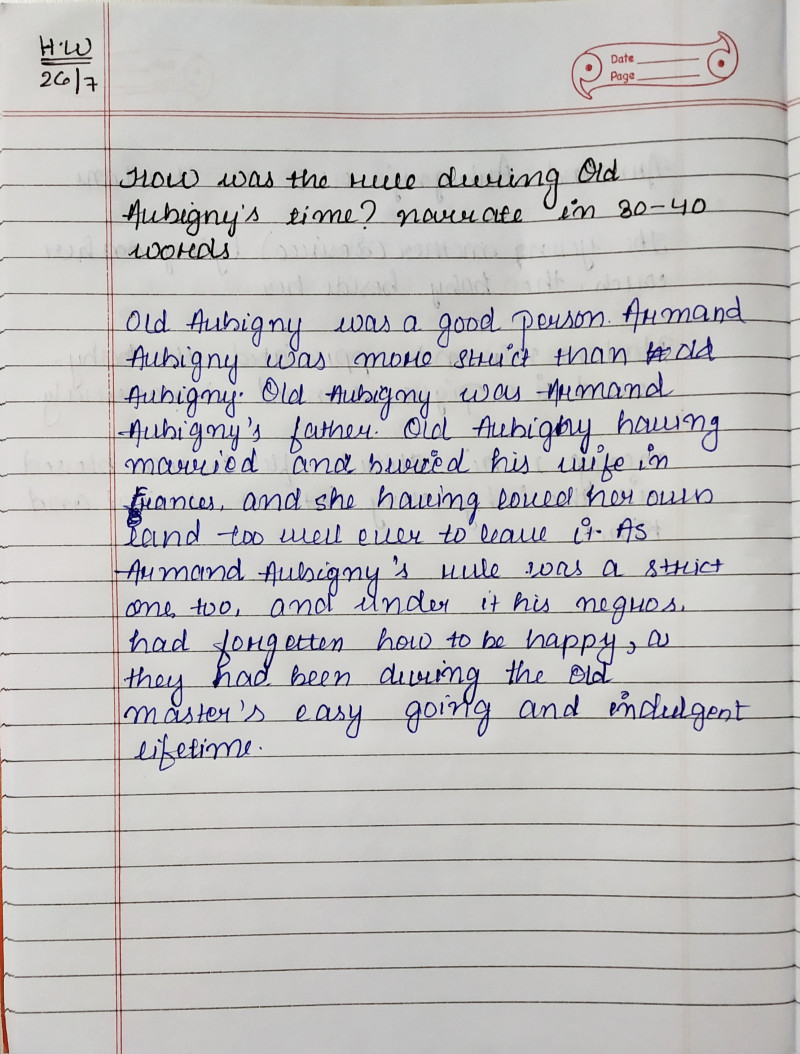 H.W
26/7
Date
Page
How was the rule during Old
Aubigny's time? narrate in 30-40
words
Old Aubigny was a good person. Armand
Aubigny was more strict than old
Aubigny. Old Aubigny was Armand
Aubigny's father. Old Aubigny having
married and buried his wife in
Frances, and she having loved her own
land too well ever to leave it. As
Armand Aubigny's rule was a strict
one, too, and under it his negros.
had forgetten how to be happy, as
they had been during the old
master's easy going and indulgent
lifetime.